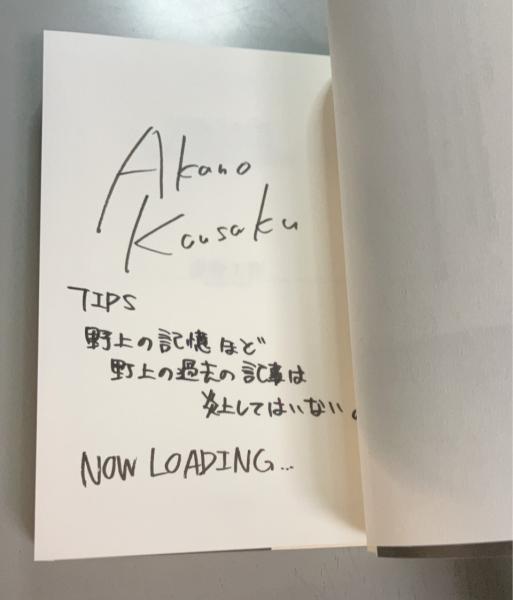 Akano
Kousaku
TIPS
野上の記憶ほど
野上の過去の記事は
炎上してはいない。
NOW LOADING...